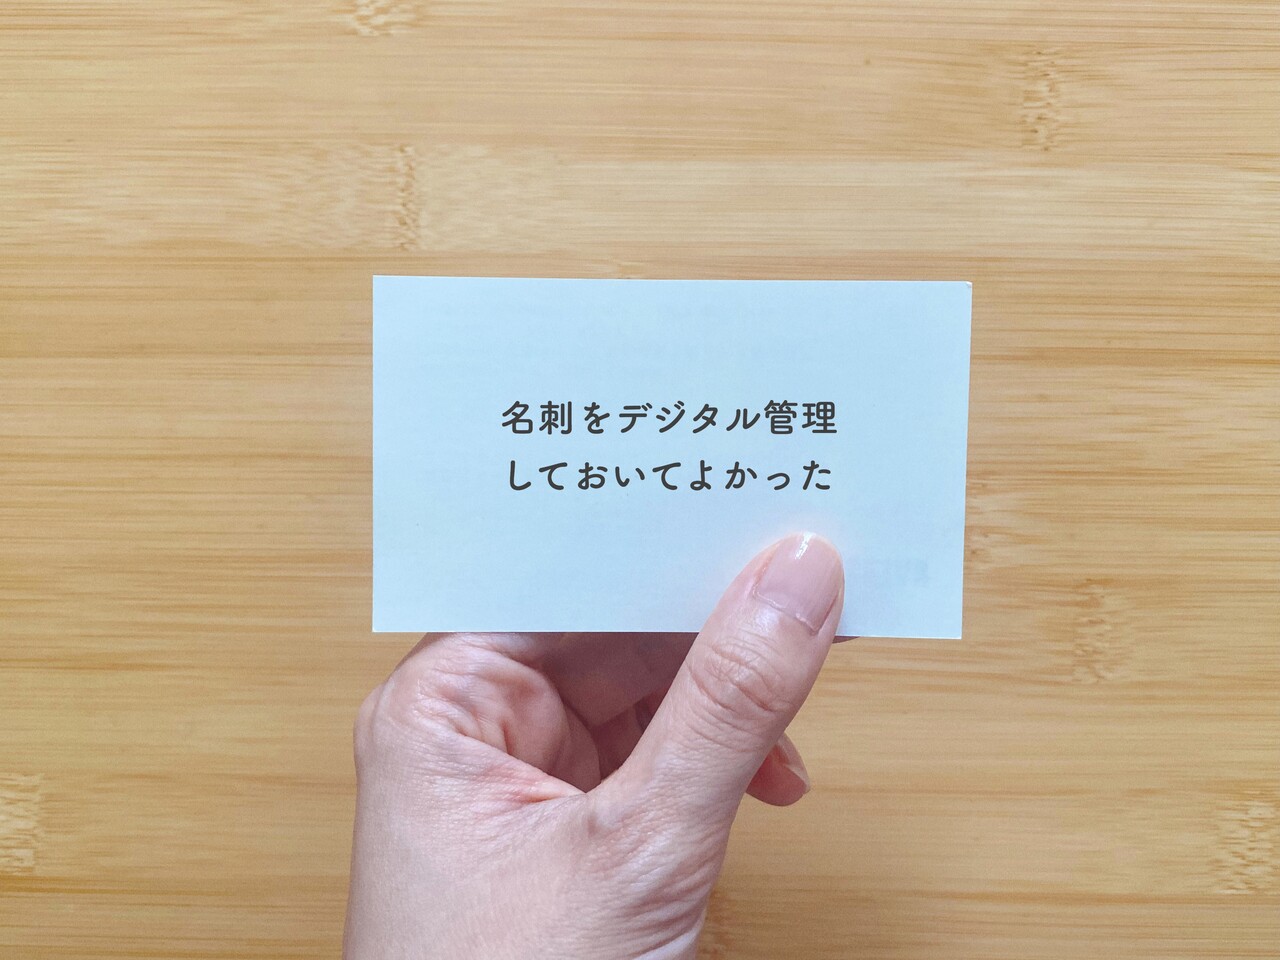 名刺をデジタル管理
しておいてよかった